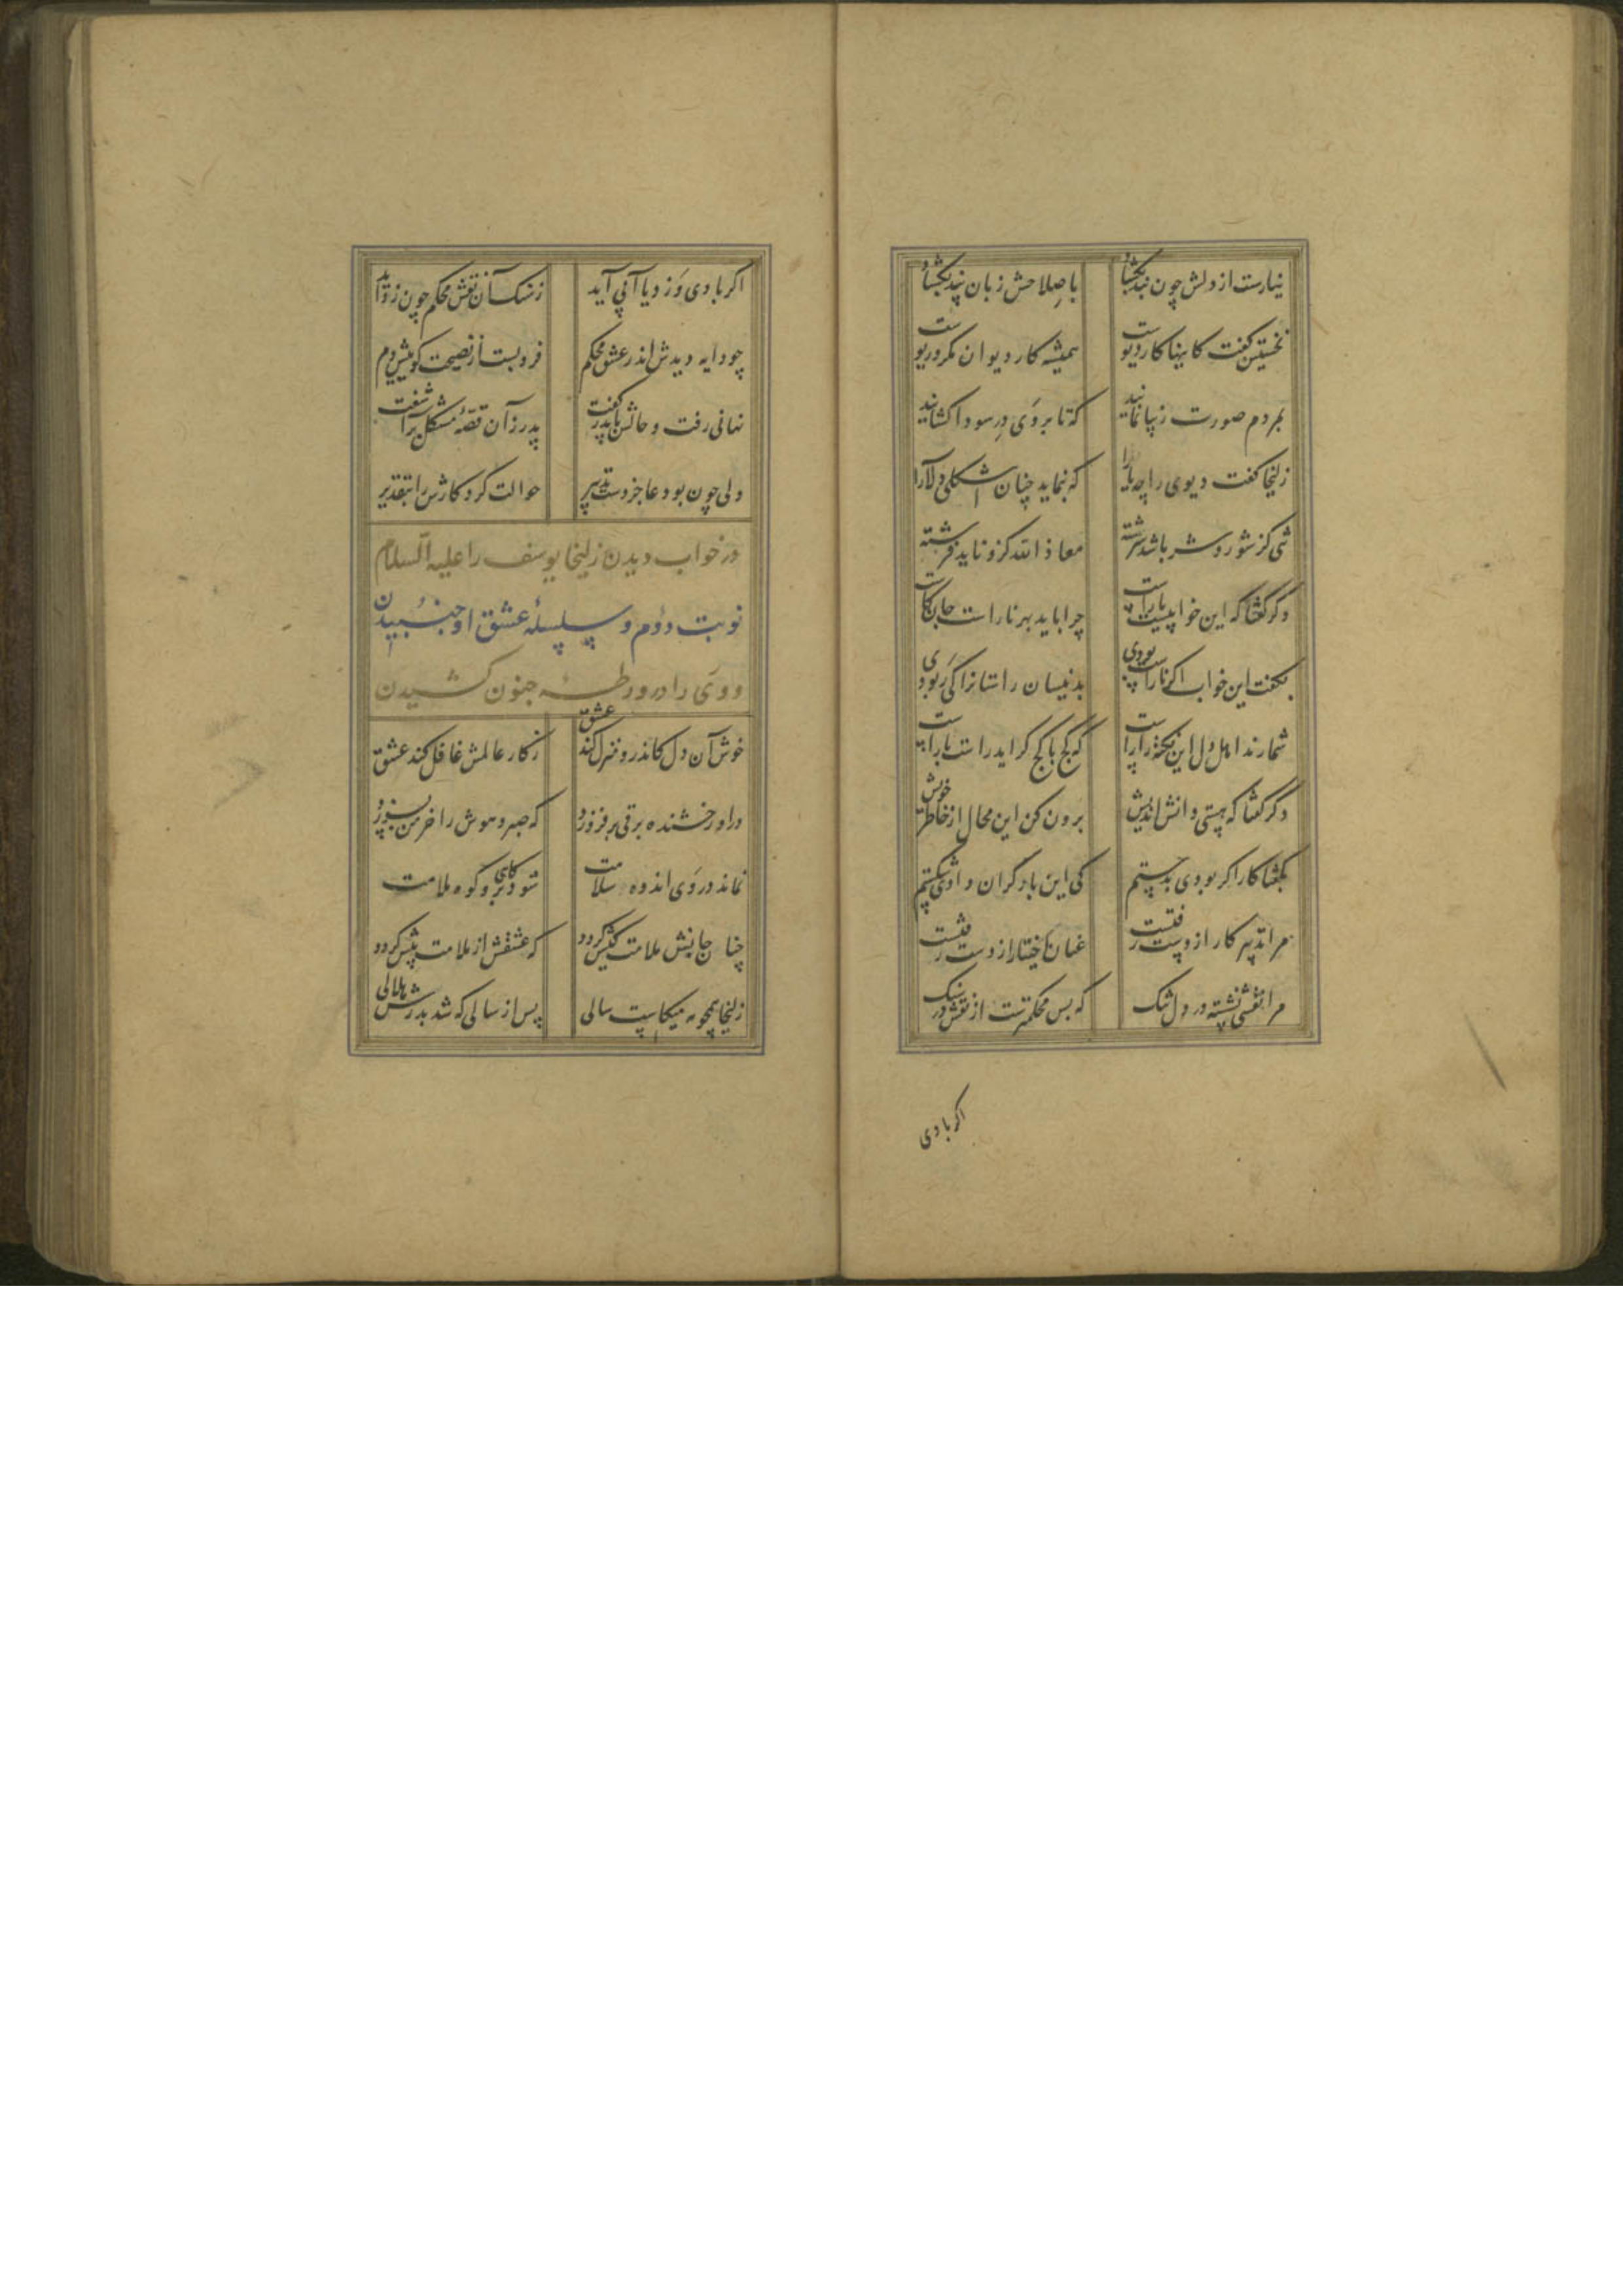 نیارست از دلش چون بند بگشاد باصلاحش زبان پند بگشاد
نخستین گفت کاینها کار دیوست همیشه کار دیوان مکر و ریوست
بمردم صورت زیبا نمایند که تا بر وی در سودا کشایند
زلیخا گفت دیوی را چه یارا که بنماید چنان شکلی دلارا
تنی کز شور و شر باشد سرشته معاذ الله کزو زاید فرشته
دگر گفتا که این خوابیست ناراست چرا باید بهر ناراست جان کاست
بگفت این خواب اگر ناراست بودی بدینسان راستانرا کی ربودی
شمارند اهل دل این نکته را راست که کج با کج گراید راست با راست
دگر گفتا که هستی دانش اندیش برون کن این محال از خاطر خویش
بگفتا کار اگر بودی بدستم کی این بار گران دادی شکستم
مرا تدبیر کار از دست رفتست عنان اختیار از دست رفتست
مرا نقشی نشسته در دل تنگ که بس محکمترست از نقش در سنگ
اگر بادی
اگر بادی وزد یا آبی آید ز سنگ آن نقش محکم چون زداید
چو دایه دیدش اندر عشق محکم فرو بست از نصیحت گوییش دم
نهانی رفت و حالش با پدر گفت پدر زان قصهٔ مشکل بر آشفت
ولی چون بود عاجز دست تدبیر حوالت کرد کارش را بتقدیر
در خواب دیدن زلیخا یوسف را علیه السلام
نوبت دوم و سلسلهٔ عشق او جنبیدن
و وی را در ورطهٔ جنون کشیدن
خوش آن دل کاندر و منزل کند عشق ز کار عالمش غافل کند عشق
درو رخشنده برقی بر فروزد که صبر و هوش را خرمن بسوزد
نماند در وی اندوه سلامت شود کاهی برو کوه ملامت
چنان جانش ملامت کیش گردد که عشقش از ملامت بیش گردد
زلیخا همچو مه میکاست سالی پس از سالی که شد بدرش هلالی